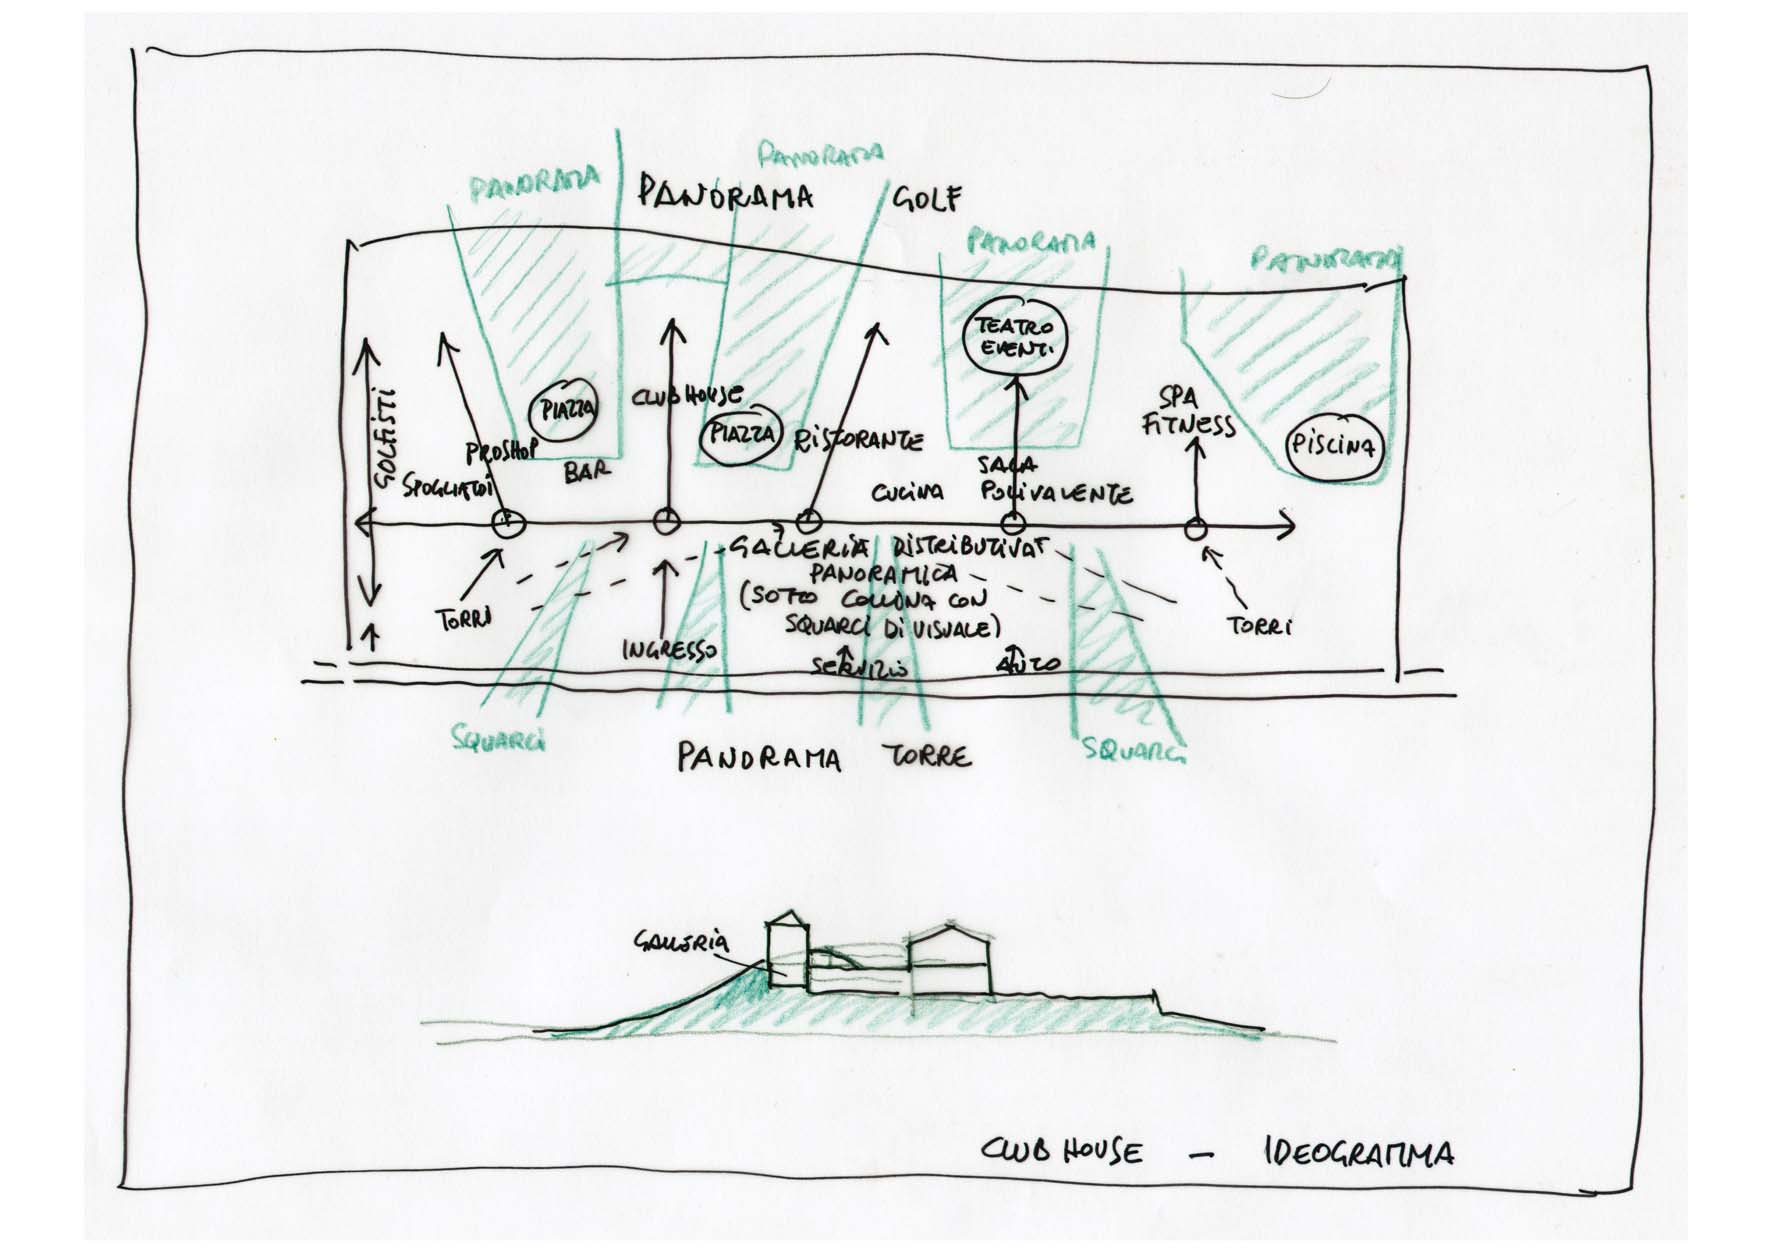 PANORAMA
PANORAMA
PANORAMA GOLF
PANORAMA
PANORAMA
TEATRO
EVENTI
GOLFISTI
PIAZZA
CLUB HOUSE
PIAZZA
RISTORANTE
SPA
FITNESS
PISCINA
PROSHOP
SPOGLIATOI
BAR
CUCINA
SALA
POLIVALENTE
GALLERIA DISTRIBUTIVA
PANORAMICA
(SOTTO COLLINA CON
SQUARCI DI VISUALE)
TORRI
TORRI
INGRESSO
SERVIZIO
AUTO
SQUARCI
PANORAMA TORRE
SQUARCI
GALLERIA
CLUB HOUSE - IDEOGRAMMA